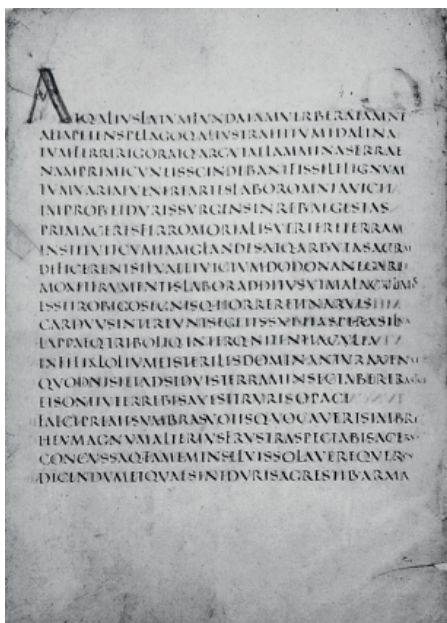 ATQ·ALIVSLATVMFVNDAIAMVERBERATAMNE
ALTAPETENSPELAGOQ·ALIVSTRAHITVMIDALINA
TVMFERRIRIGORATQ·ARGVTAELAMMINASERRAE
NAMPRIMICVNEISSCINDEBANTFISSILELIGNVM
TVMVARIAEVENEREARTESLABOROMNIAVICIT
IMPROBETDVRISSVRGENSINREBVSEGESTAS
PRIMACERESFERROMORTALISVERTERETERRAM
INSTITVITCVMIAMGLANDESATQ·ARBVTASACRAE
DEFICERENTSILVAEETVICTVMDODONANEGARET
MOXETFRVMENTISLABORADDITVSVTMALACVLMOS
ESSETROBIGOSEGNISQ·HORRERETINARVIS
CARDVVSINTEREVNTSEGETESSVBITASPERASILVA
LAPPAEQ·TRIBOLIQ·INTERQ·NITENTIACVLTA
INFELIXLOLIVMETSTERILESDOMINANTVRAVENAE
QVODNISIETADSIDVISTERRAMINSECTABERERAS
ETSONITVTERREBISAVESETRVRISOPACI
FALCEPREMESVMBRASVOTISQ·VOCAVERISIMBRE
HEVMAGNVMALTERIVSFRVSTRASPECTABISACERV
CONCVSSAQ·FAMEMINSILVISSOLAVEREQVERCV
DICENDVMETQVAESINTDVRISAGRESTIBARMA